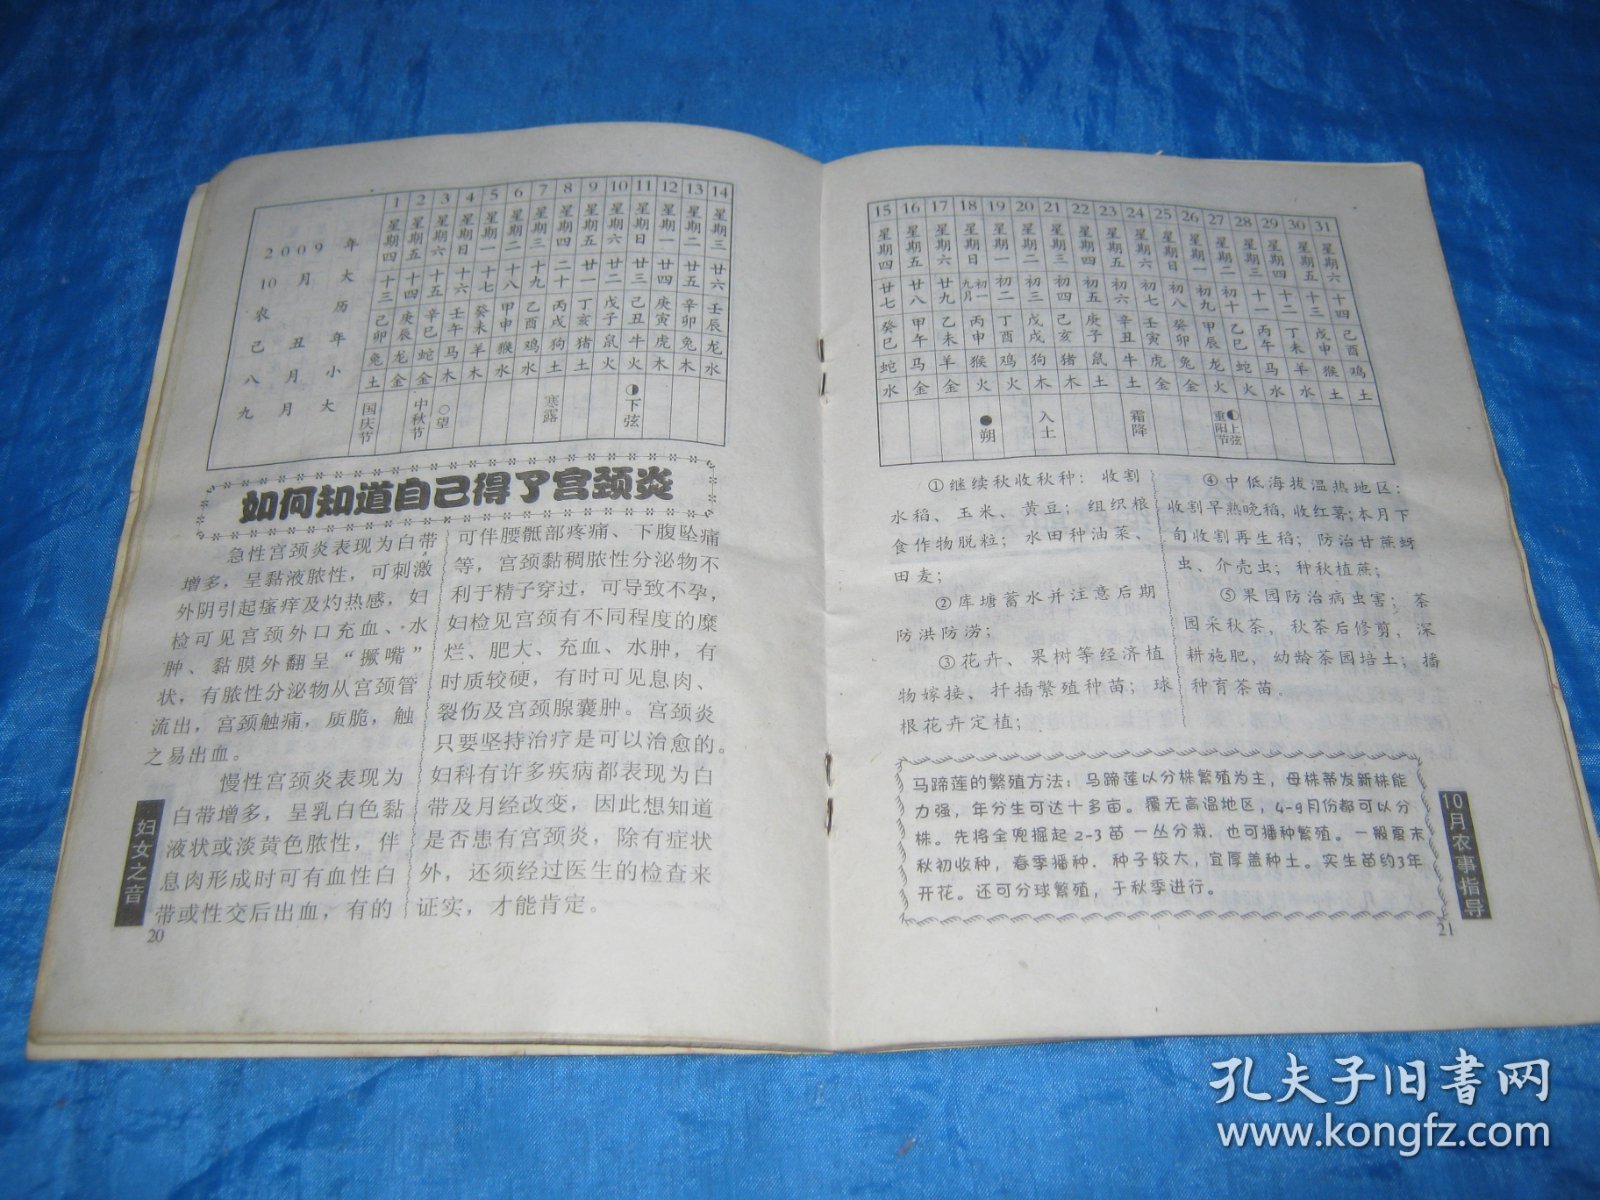 2009年
10月大
农历
己丑年
八月小
九月大
1 2 3 4 5 6 7 8 9 10 11 12 13 14
星期四 星期五 星期六 星期日 星期一 星期二 星期三 星期四 星期五 星期六 星期日 星期一 星期二 星期三
十三 十四 十五 十六 十七 十八 十九 二十 廿一 廿二 廿三 廿四 廿五 廿六
己卯 庚辰 辛巳 壬午 癸未 甲申 乙酉 丙戌 丁亥 戊子 己丑 庚寅 辛卯 壬辰
兔 龙 蛇 马 羊 猴 鸡 狗 猪 鼠 牛 虎 兔 龙
土 金 金 木 木 水 水 土 土 火 火 木 木 水
国庆节 中秋节 ○望 寒露 ◑下弦
如何知道自己得了宫颈炎
急性宫颈炎表现为白带
增多，呈黏液脓性，可刺激
外阴引起瘙痒及灼热感，妇
检可见宫颈外口充血、水
肿、黏膜外翻呈“撅嘴”
状，有脓性分泌物从宫颈管
流出，宫颈触痛，质脆，触
之易出血。
慢性宫颈炎表现为
白带增多，呈乳白色黏
液状或淡黄色脓性，伴
息肉形成时可有血性白
带或性交后出血，有的
可伴腰骶部疼痛、下腹坠痛
等，宫颈黏稠脓性分泌物不
利于精子穿过，可导致不孕，
妇检见宫颈有不同程度的糜
烂、肥大、充血、水肿，有
时质较硬，有时可见息肉、
裂伤及宫颈腺囊肿。宫颈炎
只要坚持治疗是可以治愈的。
妇科有许多疾病都表现为白
带及月经改变，因此想知道
是否患有宫颈炎，除有症状
外，还须经过医生的检查来
证实，才能肯定。
妇女之音
20
15 16 17 18 19 20 21 22 23 24 25 26 27 28 29 30 31
星期四 星期五 星期六 星期日 星期一 星期二 星期三 星期四 星期五 星期六 星期日 星期一 星期二 星期三 星期四 星期五 星期六
廿七 廿八 廿九 九月初一 初二 初三 初四 初五 初六 初七 初八 初九 初十 十一 十二 十三 十四
癸巳 甲午 乙未 丙申 丁酉 戊戌 己亥 庚子 辛丑 壬寅 癸卯 甲辰 乙巳 丙午 丁未 戊申 己酉
蛇 马 羊 猴 鸡 狗 猪 鼠 牛 虎 兔 龙 蛇 马 羊 猴 鸡
水 金 金 火 火 木 木 土 土 金 金 火 火 水 水 土 土
●朔 入土 霜降 重阳节 ◐上弦
①继续秋收秋种：收割
水稻、玉米、黄豆；组织粮
食作物脱粒；水田种油菜、
田麦；
②库塘蓄水并注意后期
防洪防涝；
③花卉、果树等经济植
物嫁接、扦插繁殖种苗；球
根花卉定植；
④中低海拔温热地区：
收割早熟晚稻，收红薯；本月下
旬收割再生稻；防治甘蔗蚜
虫、介壳虫；种秋植蔗；
⑤果园防治病虫害；茶
园采秋茶，秋茶后修剪、深
耕施肥，幼龄茶园培土；播
种育茶苗。
马蹄莲的繁殖方法：马蹄莲以分株繁殖为主，母株蒂发新株能
力强，年分生可达十多亩。覆无高温地区，4-9月份都可以分
株。先将全兜掘起2-3苗一丛分栽，也可播种繁殖。一般夏末
秋初收种，春季播种，种子较大，宜厚盖种土。实生苗约3年
开花。还可分球繁殖，于秋季进行。
10月农事指导
21
孔夫子旧书网
www.kongfz.com